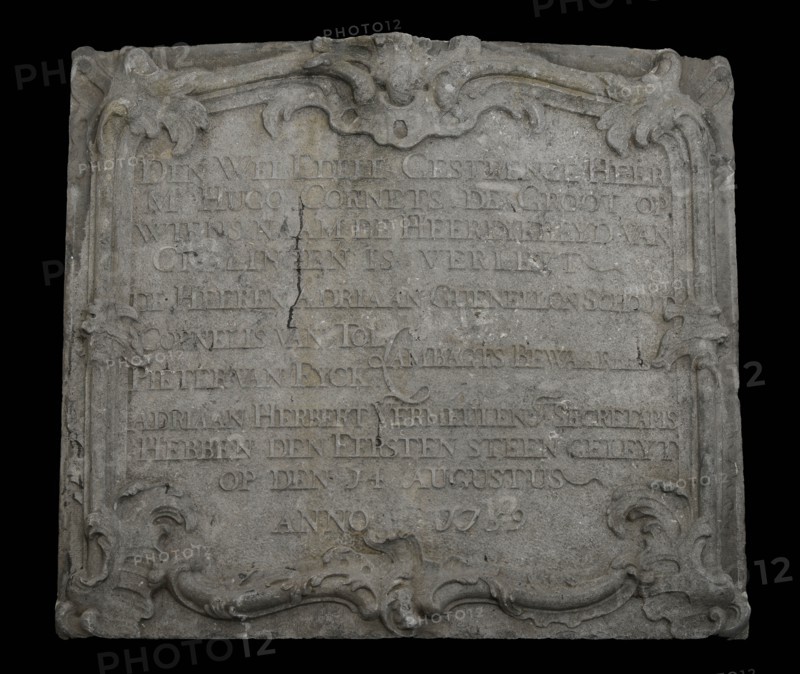 DEN WEL EDELE GESTRENGE HEER
Mr HUGO CORNETS DE GROOT OP
WIENS NAAM DE HEERLYKHEYD VAN
CRALINGEN IS VERLEIT
DE HEEREN ADRIAAN
CORNELIS VAN TOL
AMBAGTS BEWAARDERS
PIETER VAN EYCK
ADRIAAN HERBERT VERMEULEN SECRETARIS
HEBBEN DEN EERSTEN STEEN GELEYT
OP DEN 14 AUGUSTUS
ANNO
PHOTO12